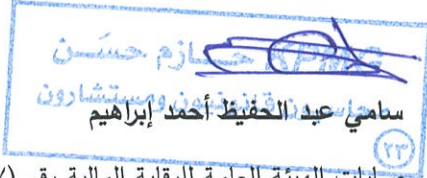 KPMG حازم حسن
محاسبون قانونيون ومستشارون
سامي عبد الحفيظ أحمد إبراهيم
(٢٣)
الهيئة العامة للرقابة المالية رقم